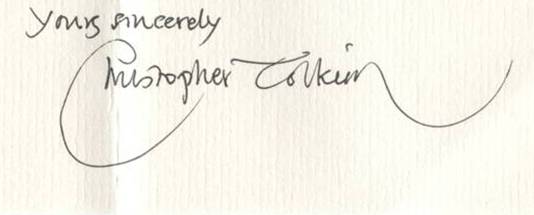 Yours sincerely
Christopher Tolkien